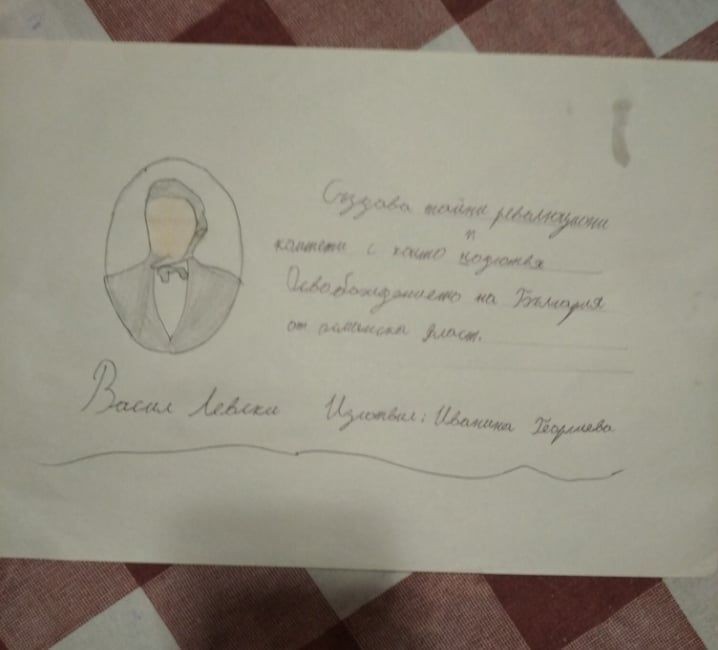 Създава тайни революциони
комитети с които подготвя
Освобождението на България
от османска власт.
Васил Левски Изготвил: Иванина Георгиева